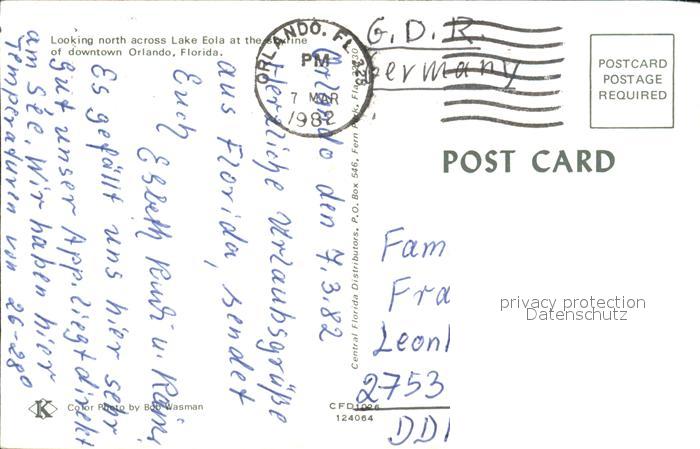 Looking north across Lake Eola at the skyline
of downtown Orlando, Florida.
ORLANDO, FL 328
PM
7 MAR
1982
G.D.R.
Germany
POSTCARD
POSTAGE
REQUIRED
POST CARD
Orlando den 7.3.82
Herzliche Urlaubsgrüße
aus Florida, sendet
Euch Rudi u.
Es gefällt uns hier sehr
gut unser App. liegt direkt
am See. Wir haben hier
Temperaturen von 26-28°
Central Florida Distributors, P.O. Box 546, Fern Park, Fla.
Fam
Fra
Leon
2753
DD
privacy protection
Datenschutz
K
Color Photo by Bob Wasman
CFD1026
124064